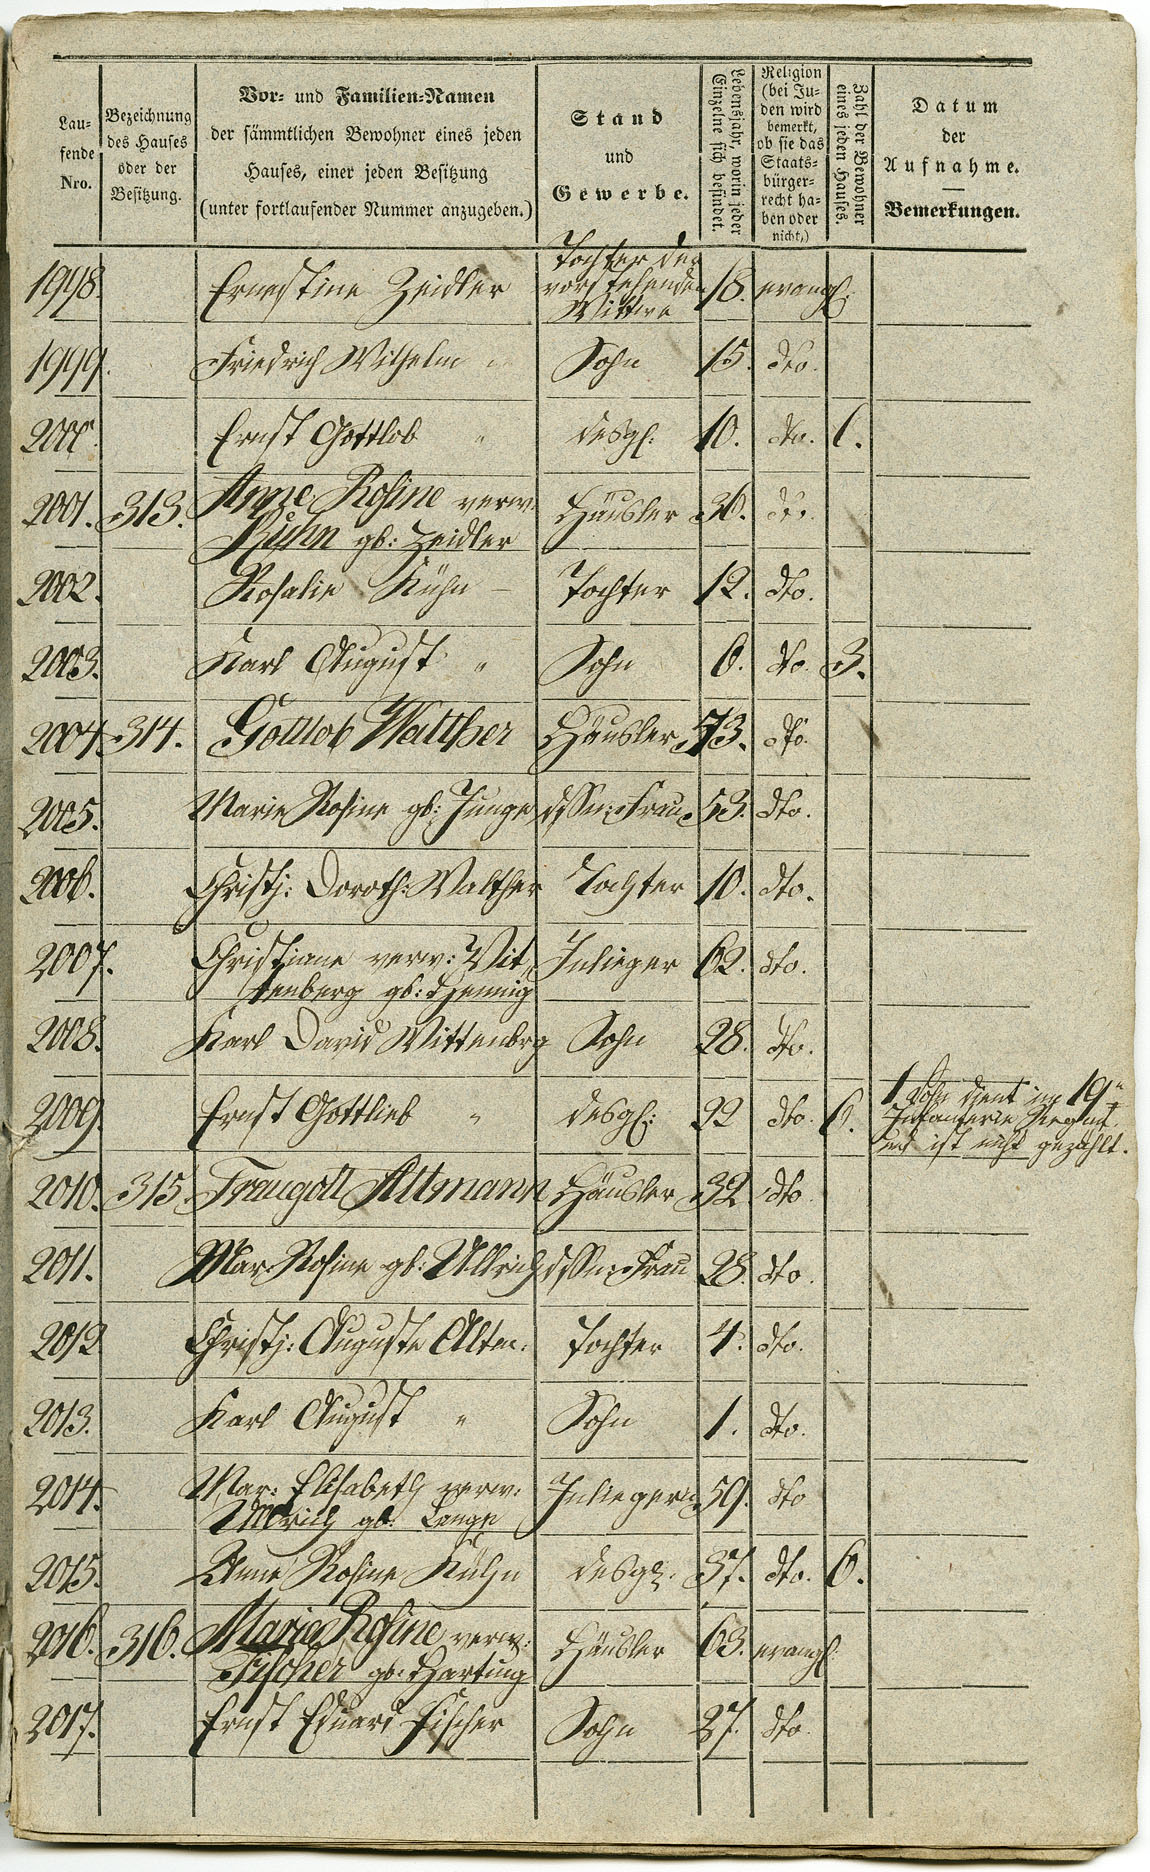 Lau-
fende
Nro.
Bezeichnung
des Hauses
oder der
Besitzung.
Vor- und Familien-Namen
der sämmtlichen Bewohner eines jeden
Hauses, einer jeden Besitzung
(unter fortlaufender Nummer anzugeben.)
Stand
und
Gewerbe.
Lebensjahr, worin jeder
Einzelne sich befindet.
Religion
(bei Ju-
den wird
bemerkt,
ob sie das
Staats-
bürger-
recht ha-
ben oder
nicht,)
Zahl der Bewohner
eines jeden Hauses.
Datum
der
Aufnahme.
Bemerkungen.
Tochter der
1998. Ernestine Zeidler vorstehenden 18. evangl:
Wittwe
1999. Friedrich Wilhelm " Sohn 15. dto.
2000. Ernst Gottlob " desgl: 10. dto. 6.
2001. 313. Anne Rosine verw: Häusler 36. dto.
Kühn gb: Zeidler
2002. Rosalie Kühn – Tochter 12. dto.
2003. Karl August " Sohn 6. dto. 3.
2004. 314. Gottlob Walther Häusler 53. dto.
2005. Marie Rosine gb: Junge dssn: Frau 53. dto.
2006. Christj: Doroth: Walther Tochter 10. dto.
2007. Christiane verw: Wit„ Inlieger 62. dto.
tenberg gb: Hennig
2008. Karl David Wittenbrg Sohn 28. dto.
2009. Ernst Gottlieb " desgl: 22 dto. 6. 1 Sohn dient im 19n
Infanterie Regmt.
und ist nicht gezählt.
2010. 315. Traugott Altmann Häusler 32 dto
2011. Mar: Rosine gb: Ullrich dssn: Frau 28. dto.
2012 Christj: Auguste Altm: Tochter 4. dto.
2013. Karl August " Sohn 1. dto.
2014. Mar: Elisabeth verw: Inliegerin 59. dto
Ullrich gb: Lange
2015. Anne Rosine Kühn desgl. 37. dto. 6.
2016. 316. Marie Rosine verw: Häusler 63. evangl:
Fischer gb: Hartung
2017. Ernst Eduard Fischer Sohn 27. dto.